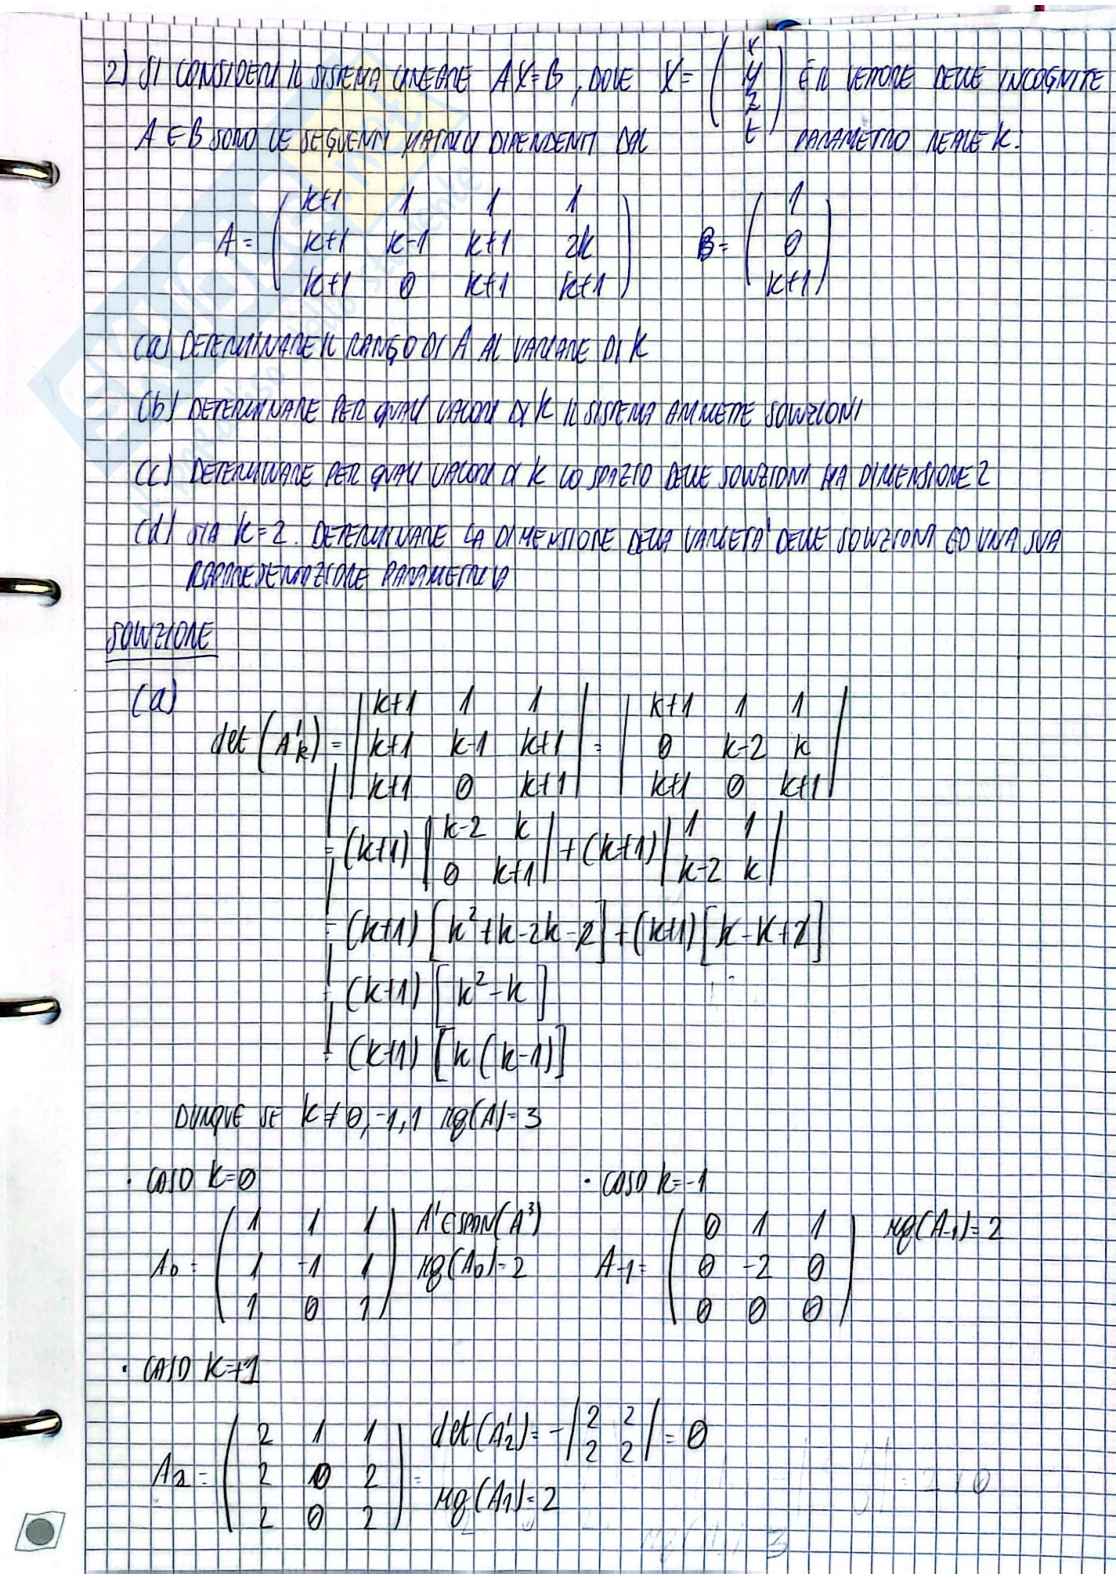 2) SI CONSIDERI IL SISTEMA LINEARE AX=B, DOVE X= ( x y z t ) È IL VETTORE DELLE INCOGNITE
A E B SONO LE SEGUENTI MATRICI DIPENDENTI DAL PARAMETRO REALE K.
A = ( k+1 1 1 1
k+1 k-1 k+1 2k
k+1 0 k+1 k+1 )
B = ( 1
0
k+1 )
(a) DETERMINARE IL RANGO DI A AL VARIARE DI K
(b) DETERMINARE PER QUALI VALORI DI K IL SISTEMA AMMETTE SOLUZIONI
(c) DETERMINARE PER QUALI VALORI DI K LO SPAZIO DELLE SOLUZIONI HA DIMENSIONE 2
(d) SIA K=2. DETERMINARE LA DIMENSIONE DELLA VARIETA' DELLE SOLUZIONI ED UNA SUA
RAPPRESENTAZIONE PARAMETRICA
SOLUZIONE
(a)
det (A'k) = | k+1 1 1 | = | k+1 1 1 |
| k+1 k-1 k+1 | | 0 k-2 k |
| k+1 0 k+1 | | k+1 0 k+1 |
= (k+1) | k-2 k | + (k+1) | 1 1 |
| 0 k+1 | | k-2 k |
= (k+1) [k²+k-2k-2] + (k+1) [k-k+2]
= (k+1) [k²-k]
= (k+1) [k(k-1)]
DUNQUE SE K≠0,-1,1 rg(A)=3
· CASO K=0
A0 = ( 1 1 1
1 -1 1
1 0 1 )
A¹∈SPAN(A³)
rg(A0)=2
· CASO K=-1
A-1 = ( 0 1 1
0 -2 0
0 0 0 )
rg(A-1)=2
· CASO K=+1
A2 = ( 2 1 1
2 0 2
2 0 2 ) =
det(A'2) = - | 2 2 | = 0
| 2 2 |
rg(A1)=2